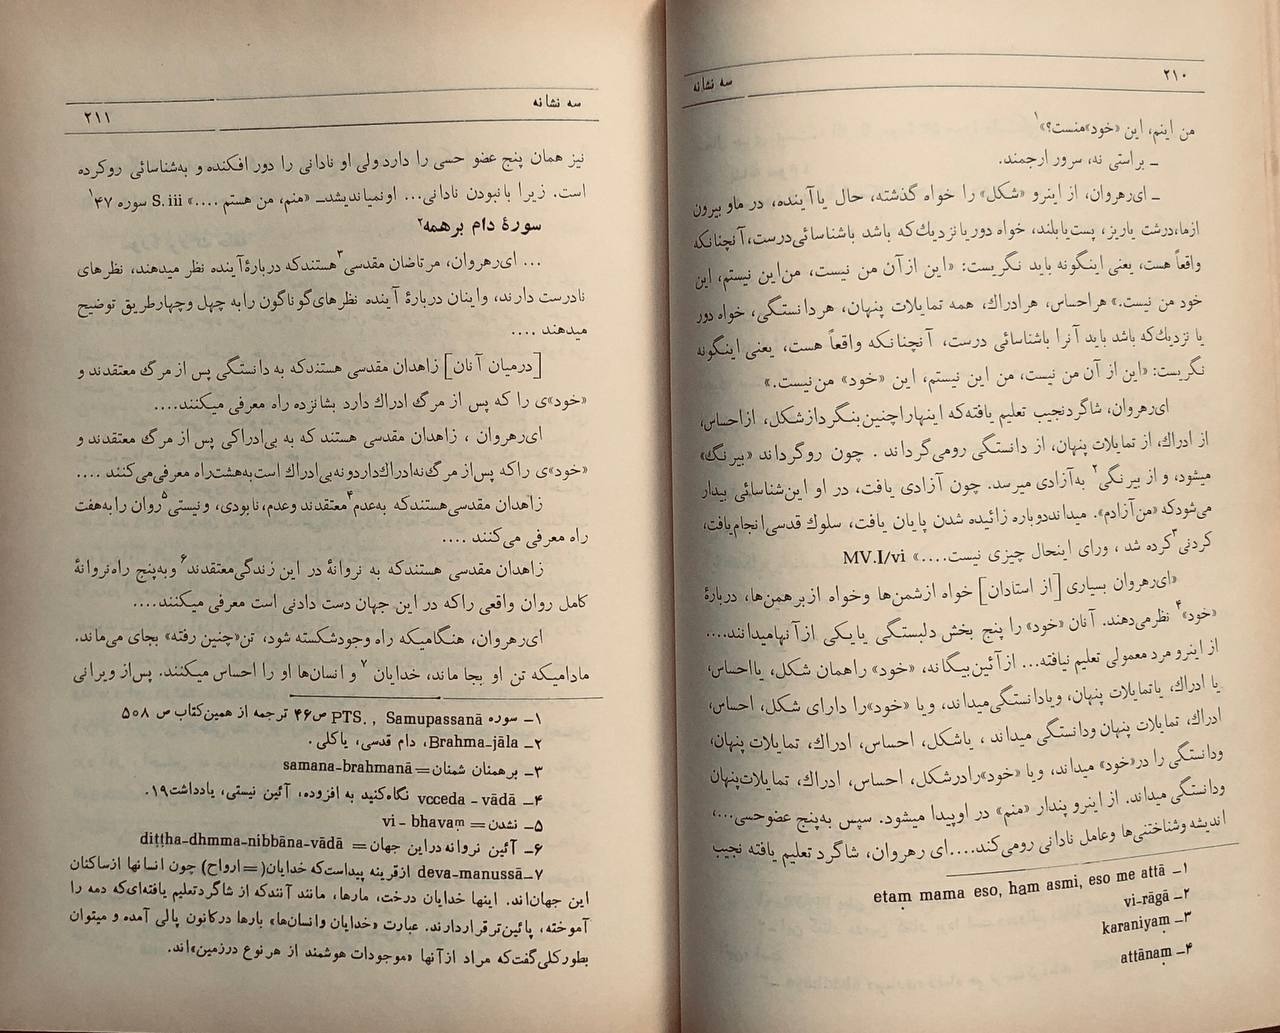 ۲۱۰
سه نشانه
من اینم، این «خود»منست؟»۱
ـ براستی نه، سرور ارجمند.
ـ ای‌رهروان، از اینرو «شکل» را خواه گذشته، حال یاآینده، در ماو بیرون
ازما،درشت یاریز، پست‌یابلند، خواه دوریانزدیك‌که باشد باشناسائی‌درست، آنچنانکه
واقعاً هست، یعنی اینگونه باید نگریست: «این ازآن من نیست، من‌این نیستم، این
خود من نیست.» هراحساس، هرادراك، همه تمایلات پنهان، هردانستگی، خواه دور
یا نزدیك‌که باشد باید آنرا باشناسائی درست، آنچنانکه واقعاً هست، یعنی اینگونه
نگریست: «این از آن من نیست، من این نیستم، این «خود» من‌نیست.»
ای‌رهروان، شاگردنجیب تعلیم یافته‌که اینهاراچنین‌بنگردازشکل، ازاحساس،
از ادراك، از تمایلات پنهان، از دانستگی رومی‌گرداند . چون روگرداند «بیرنگ»
میشود، و از بیرنگی۲ به‌آزادی میرسد. چون آزادی یافت، در او این‌شناسائی بیدار
می‌شودکه «من‌آزادم». میدانددوباره زائیده شدن پایان یافت، سلوك قدسی‌انجام‌یافت،
کردنی۳کرده شد ، ورای اینحال چیزی نیست....» MV.I/vi
«ای‌رهروان بسیاری [از استادان] خواه ازشمن‌ها وخواه ازبرهمن‌ها، دربارهٔ
«خود»۴ نظرمی‌دهند. آنان «خود» را پنج بخش دلبستگی یایکی ازآنهامیدانند....
از اینرو مرد معمولی تعلیم نیافته... ازآئین‌بیگانه، «خود» راهمان شکل، یااحساس،
یا ادراك، یاتمایلات پنهان، ویادانستگی‌میداند، ویا «خود»را دارای شکل، احساس،
ادراك، تمایلات پنهان ودانستگی میداند ، یاشکل، احساس، ادراك، تمایلات پنهان،
ودانستگی را در«خود» میداند، ویا «خود»رادرشکل، احساس، ادراك، تمایلات‌پنهان
ودانستگی میداند. از اینرو پندار «منم» در اوپیدا میشود. سپس به‌پنج عضوحسی...،
اندیشه وشناختنی‌ها وعامل نادانی رومی‌کند....ای رهروان، شاگرد تعلیم یافته نجیب
۱ـ etaṃ mama eso, haṃ asmi, eso me attā
۲ـ vi-rāgā
۳ـ karaniyaṃ
۴ـ attānaṃ
سه نشانه
۲۱۱
نیز همان پنج عضو حسی را دارد ولی او نادانی را دور افکنده و به‌شناسائی روکرده
است. زیرا بانبودن نادانی... اونمیاندیشدـ «منم، من هستم ....» S.iii سوره ۴۷۱
سورهٔ دام برهمه۲
... ای‌رهروان، مرتاضان مقدسی۳هستندکه دربارهٔ‌آینده نظر میدهند، نظرهای
نادرست دارند، واینان دربارهٔ آینده نظرهای‌گوناگون رابه چهل وچهارطریق توضیح
میدهند ....
[درمیان آنان] زاهدان مقدسی هستندکه به دانستگی پس از مرگ معتقدند و
«خود»ی را که پس از مرگ ادراك دارد بشانزده راه معرفی میکنند....
ای‌رهروان ، زاهدان مقدسی هستند که به بی‌ادراکی پس از مرگ معتقدند و
«خود»ی راکه پس‌از مرگ‌نه‌ادراك‌داردونه‌بی‌ادراك است‌به‌هشت‌راه معرفی‌می‌کنند ....
زاهدان مقدسی‌هستندکه به‌عدم۴ معتقدند وعدم،نابودی، ونیستی۵روان رابه‌هفت
راه معرفی می‌کنند ....
زاهدان مقدسی هستندکه به نروانهٔ در این زندگی‌معتقدند۶ وبه‌پنج راه‌نروانهٔ
کامل روان واقعی راکه در این جهان دست دادنی است معرفی میکنند....
ای‌رهروان، هنگامیکه راه وجودشکسته شود، تن«چنین رفته» بجای می‌ماند.
مادامیکه تن او بجا ماند، خدایان ۷ و انسان‌ها او را احساس میکنند. پس‌از ویرانی
۱ـ سوره PTS., Samupassanā ص۴۶ ترجمه از همین‌کتاب ص ۵۰۸
۲ـ Brahma-jāla، دام قدسی، یاکلی.
۳ـ برهمنان شمنان=samana-brahmanā
۴ـ vcceda-vādā نگاه‌کنید به افزوده، آئین نیستی، یادداشت۱۹.
۵ـ نشدن= vi-bhavaṃ
۶ـ آئین نروانه دراین جهان= diṭṭha-dhmma-nibbāna-vādā
۷ـ deva-manussā ازقرینه پیداست‌که خدایان(=ارواح) چون انسانها ازساکنان
این جهان‌اند. اینها خدایان درخت، مارها، مانند آنندکه از شاگردتعلیم یافته‌ای‌که دمه را
آموخته، پائین‌ترقراردارند. عبارت «خدایان وانسان‌ها» بارها درکانون پالی آمده و میتوان
بطورکلی‌گفت‌که مراد ازآنها «موجودات هوشمند از هرنوع درزمین»اند.